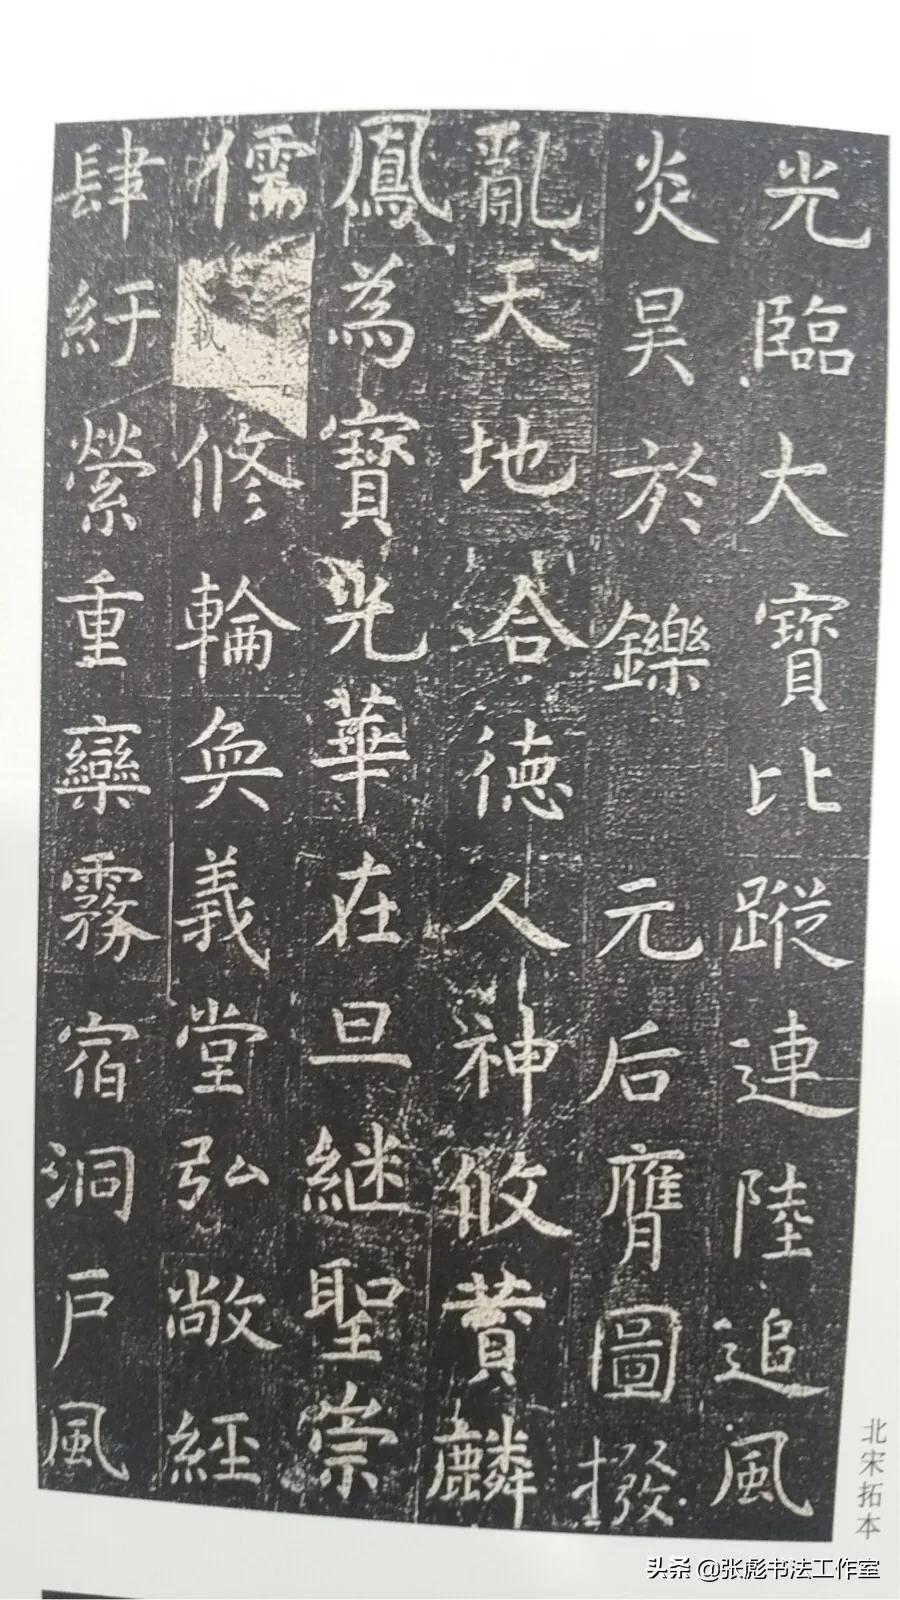 光臨大寶比蹤連陸追風
炎昊於鑠 元后膺圖撥
亂天地合德人神攸贊麟
鳳為寶光華在旦継聖崇
儒 修輪奐義堂弘敞經
肆紆縈重欒霧宿洞戶風
北宋拓本
头条 @张彪书法工作室